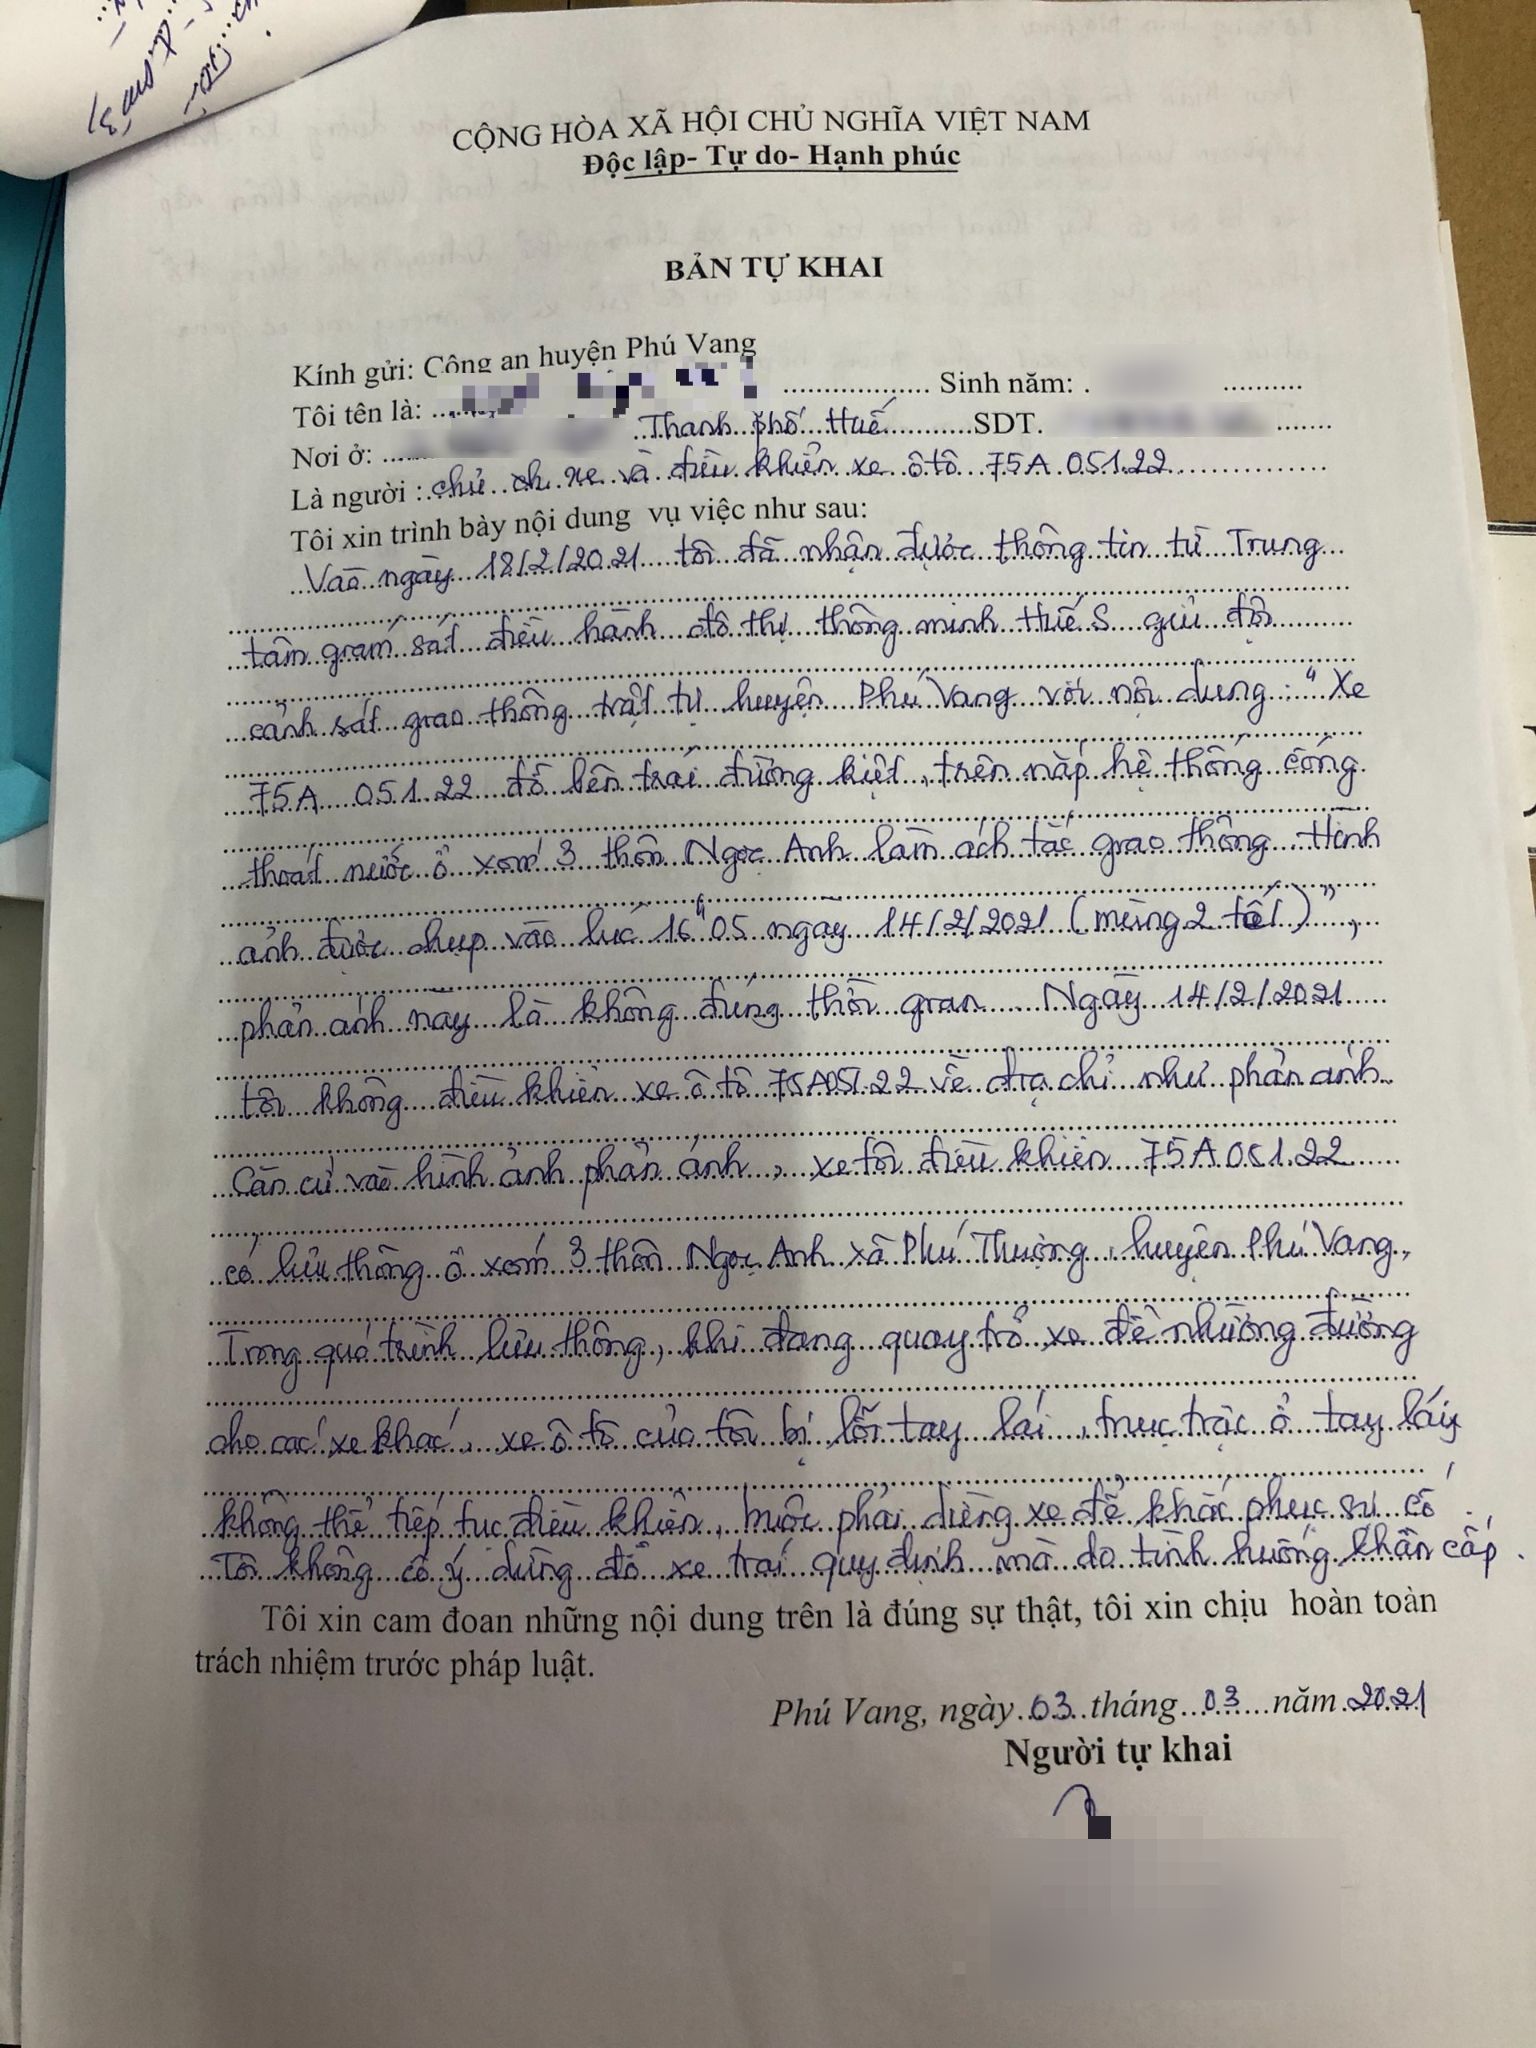 CỘNG HÒA XÃ HỘI CHỦ NGHĨA VIỆT NAM
Độc lập- Tự do- Hạnh phúc
BẢN TỰ KHAI
Kính gửi: Công an huyện Phú Vang
Tôi tên là: Sinh năm:
Nơi ở: Thành phố Huế SDT.
Là người : chủ xe và điều khiển xe ôtô 75A 051.22
Tôi xin trình bày nội dung vụ việc như sau:
Vào ngày 18/2/2021 tôi đã nhận được thông tin từ Trung
tâm giám sát điều hành đô thị thông minh Huế S gửi đội
cảnh sát giao thông trật tự huyện Phú Vang với nội dung : " Xe
75A 051.22 đỗ bên trái đường kiệt, trên nắp hệ thống cống
thoát nước ở xóm 3 thôn Ngọc Anh làm ách tắc giao thông. Hình
ảnh được chụp vào lúc 16h05 ngày 14/2/2021 (mùng 2 tết) ",
phản ánh này là không đúng thời gian. Ngày 14/2/2021
tôi không điều khiển xe ô tô 75A051.22 về địa chỉ như phản ánh.
Căn cứ vào hình ảnh phản ánh, xe tôi điều khiển 75A 051.22
có lưu thông ở xóm 3 thôn Ngọc Anh xã Phú Thượng, huyện Phú Vang,
Trong quá trình lưu thông, khi đang quay trở xe để nhường đường
cho các xe khác, xe ô tô của tôi bị lỗi tay lái, trục trặc ở tay láy
không thể tiếp tục điều khiển, buộc phải dừng xe để khắc phục sự cố.
Tôi không cố ý dừng đỗ xe trái quy định mà do tình huống khẩn cấp.
Tôi xin cam đoan những nội dung trên là đúng sự thật, tôi xin chịu hoàn toàn
trách nhiệm trước pháp luật.
Phú Vang, ngày 03 tháng 03 năm 2021
Người tự khai